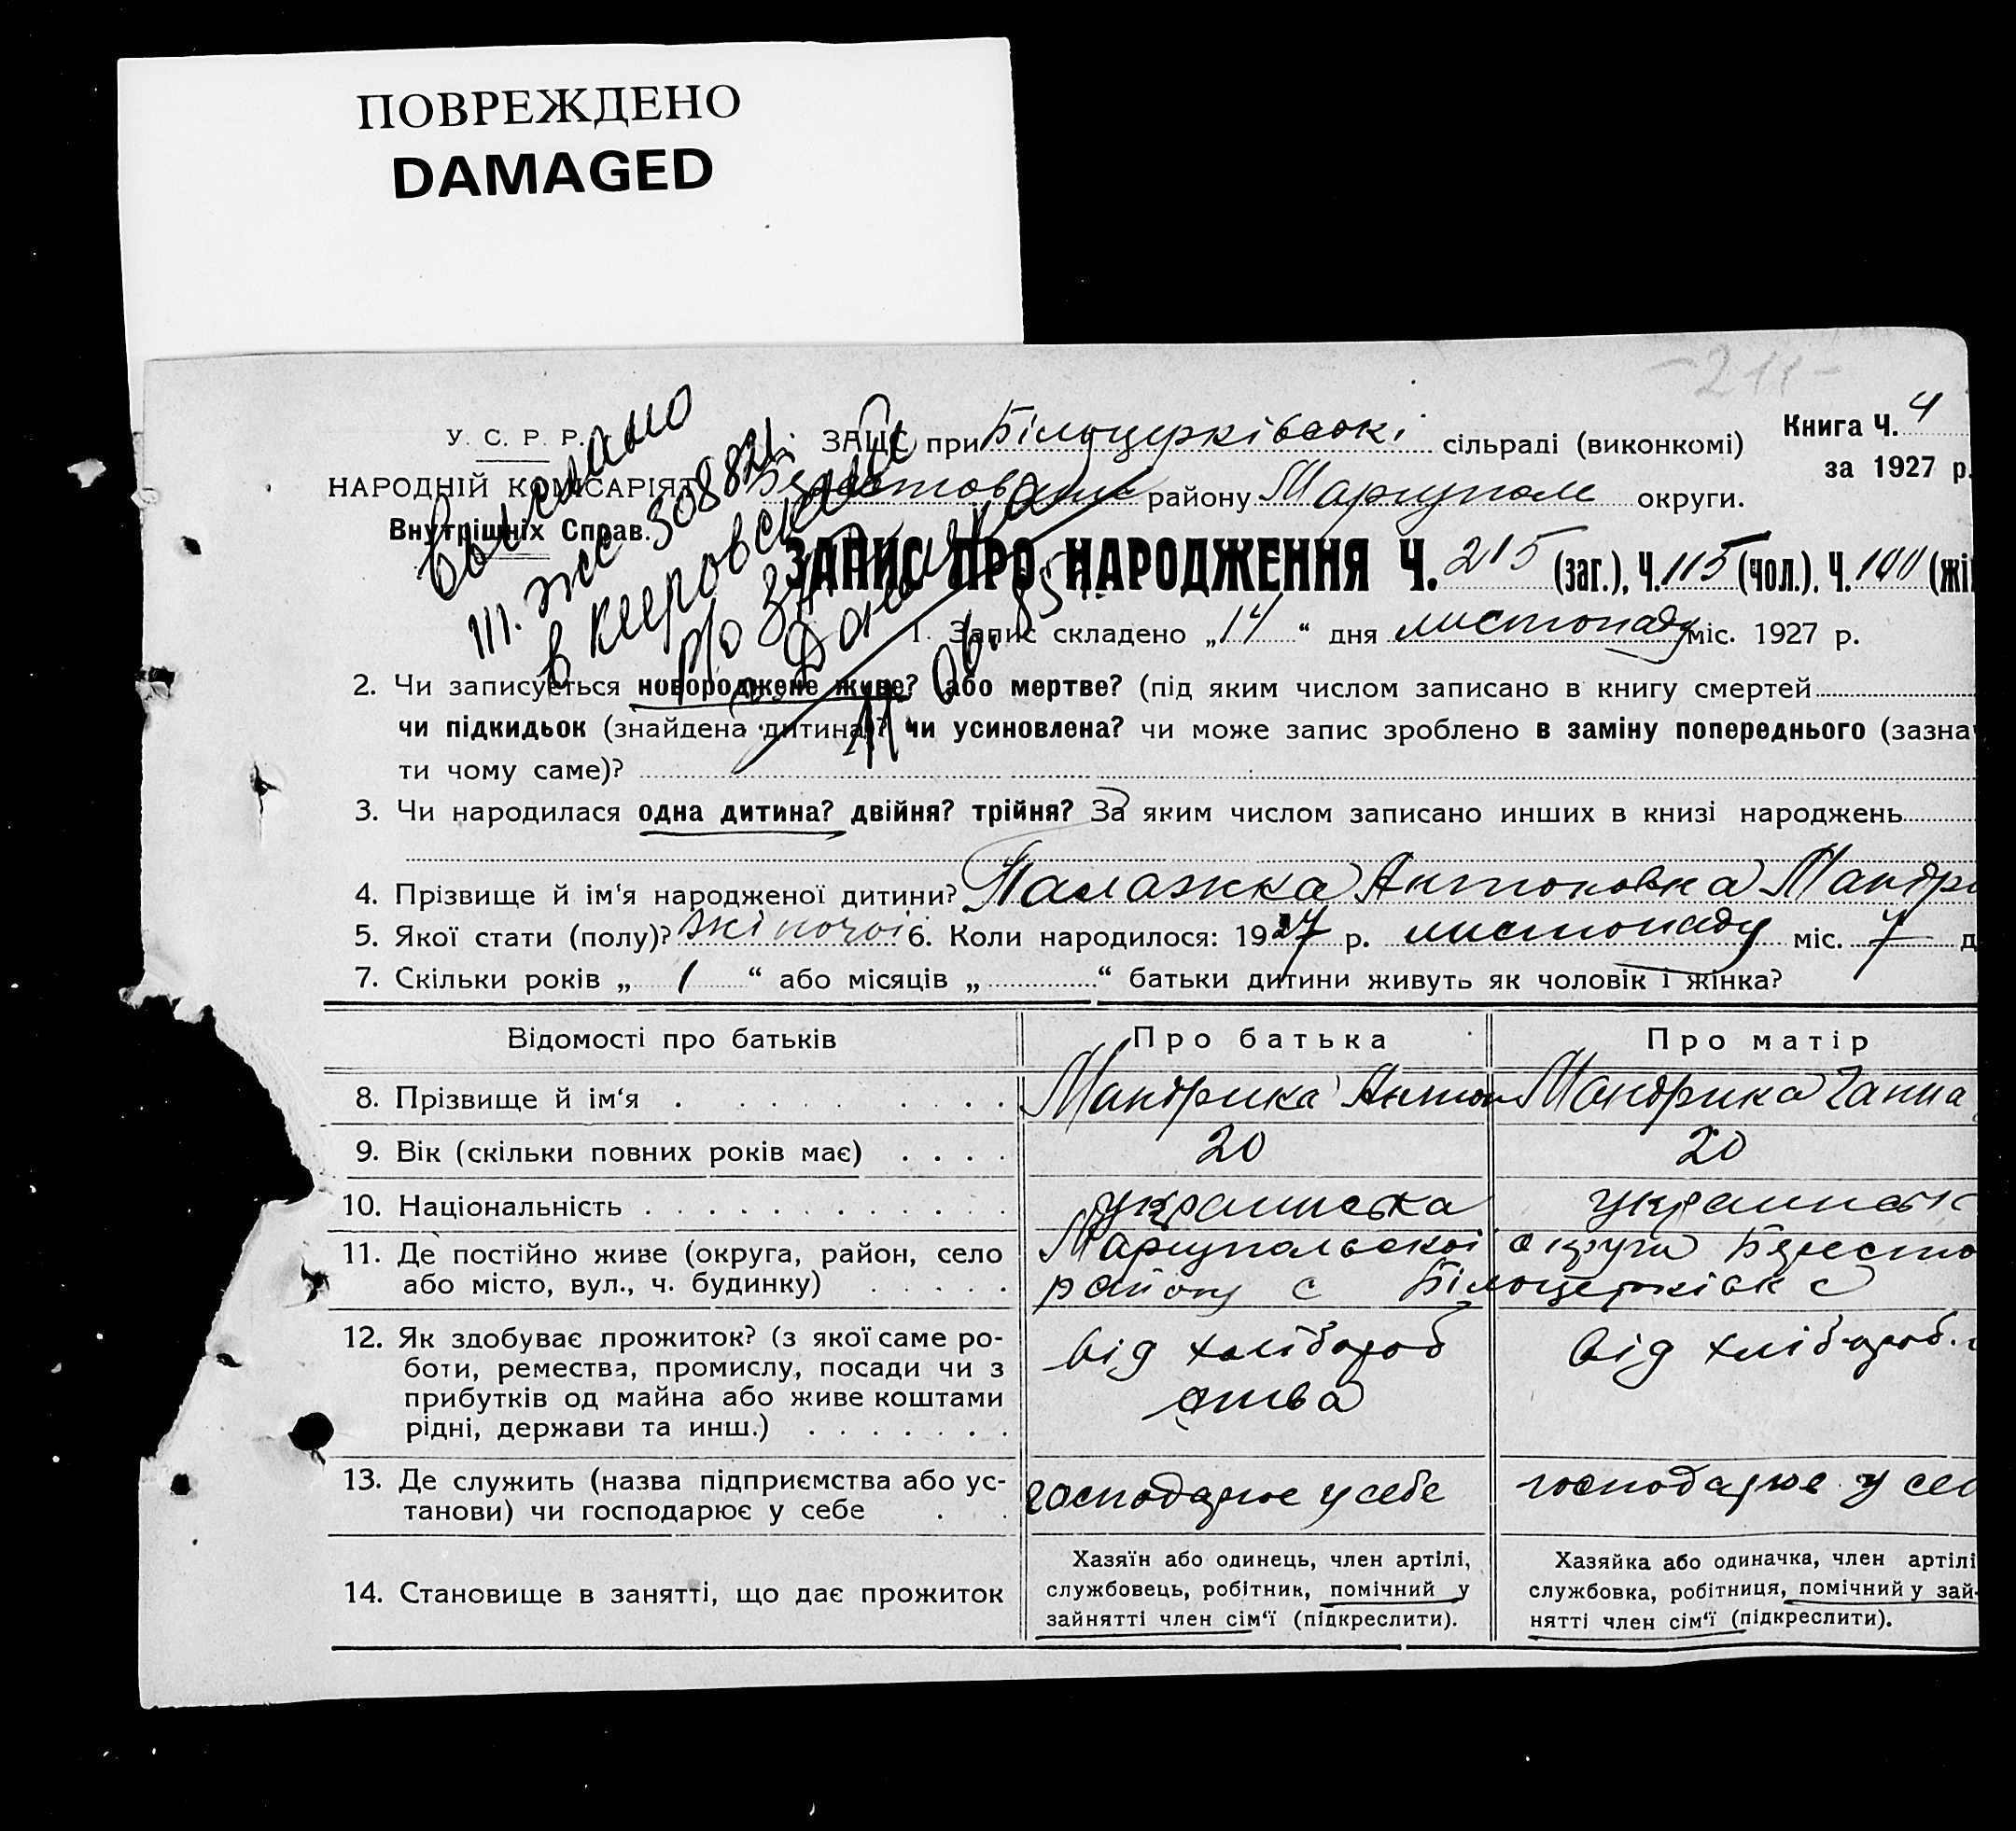 ПОВРЕЖДЕНО
DAMAGED
-211-
У. С. Р. Р.
НАРОДНІЙ КОМІСАРІЯТ
Внутрішніх Справ.
Выслано
ЗАЦС при Білоцерківські сільраді (виконкомі)
району Маріуполь округи.
Книга Ч. 4
за 1927 р.
ЗАПИС ПРО НАРОДЖЕННЯ Ч. 215 (заг.), Ч. 115 (чол.), Ч. 100 (жі
1. Запис складено „14“ дня листопаду міс. 1927 р.
2. Чи записується новороджене живе? або мертве? (під яким числом записано в книгу смертей
чи підкидьок (знайдена дитина)? чи усиновлена? чи може запис зроблено в заміну попереднього (зазна
ти чому саме)?
3. Чи народилася одна дитина? двійня? трійня? За яким числом записано инших в книзі народжень
4. Прізвище й ім‘я народженої дитини? Палажка Антоновна Мандри
5. Якої стати (полу)? жіночоі 6. Коли народилося: 1927 р. листопаду міс. 7 д
7. Скільки років „ 1 “ або місяців „ “ батьки дитини живуть як чоловік і жінка?
Відомості про батьків Про батька Про матір
8. Прізвище й ім‘я Мандрика Антон Мандрика Ганна
9. Вік (скільки повних років має) 20 20
10. Національність украинська украинськ
11. Де постійно живе (округа, район, село Маріупольскоі округи Бересто
або місто, вул., ч. будинку) району с Білоцерківк с
12. Як здобуває прожиток? (з якої саме ро-
боти, ремества, промислу, посади чи з
прибутків од майна або живе коштами
рідні, держави та инш.)
від хлібороб
ства
від хлібороб.
13. Де служить (назва підприємства або ус-
танови) чи господарює у себе
господарює у себе
господарює у себ
14. Становище в занятті, що дає прожиток
Хазяїн або одинець, член артілі,
службовець, робітник, помічний у
зайнятті член сім‘ї (підкреслити).
Хазяйка або одиначка, член артілі
службовка, робітниця, помічний у зай-
нятті член сім‘ї (підкреслити).